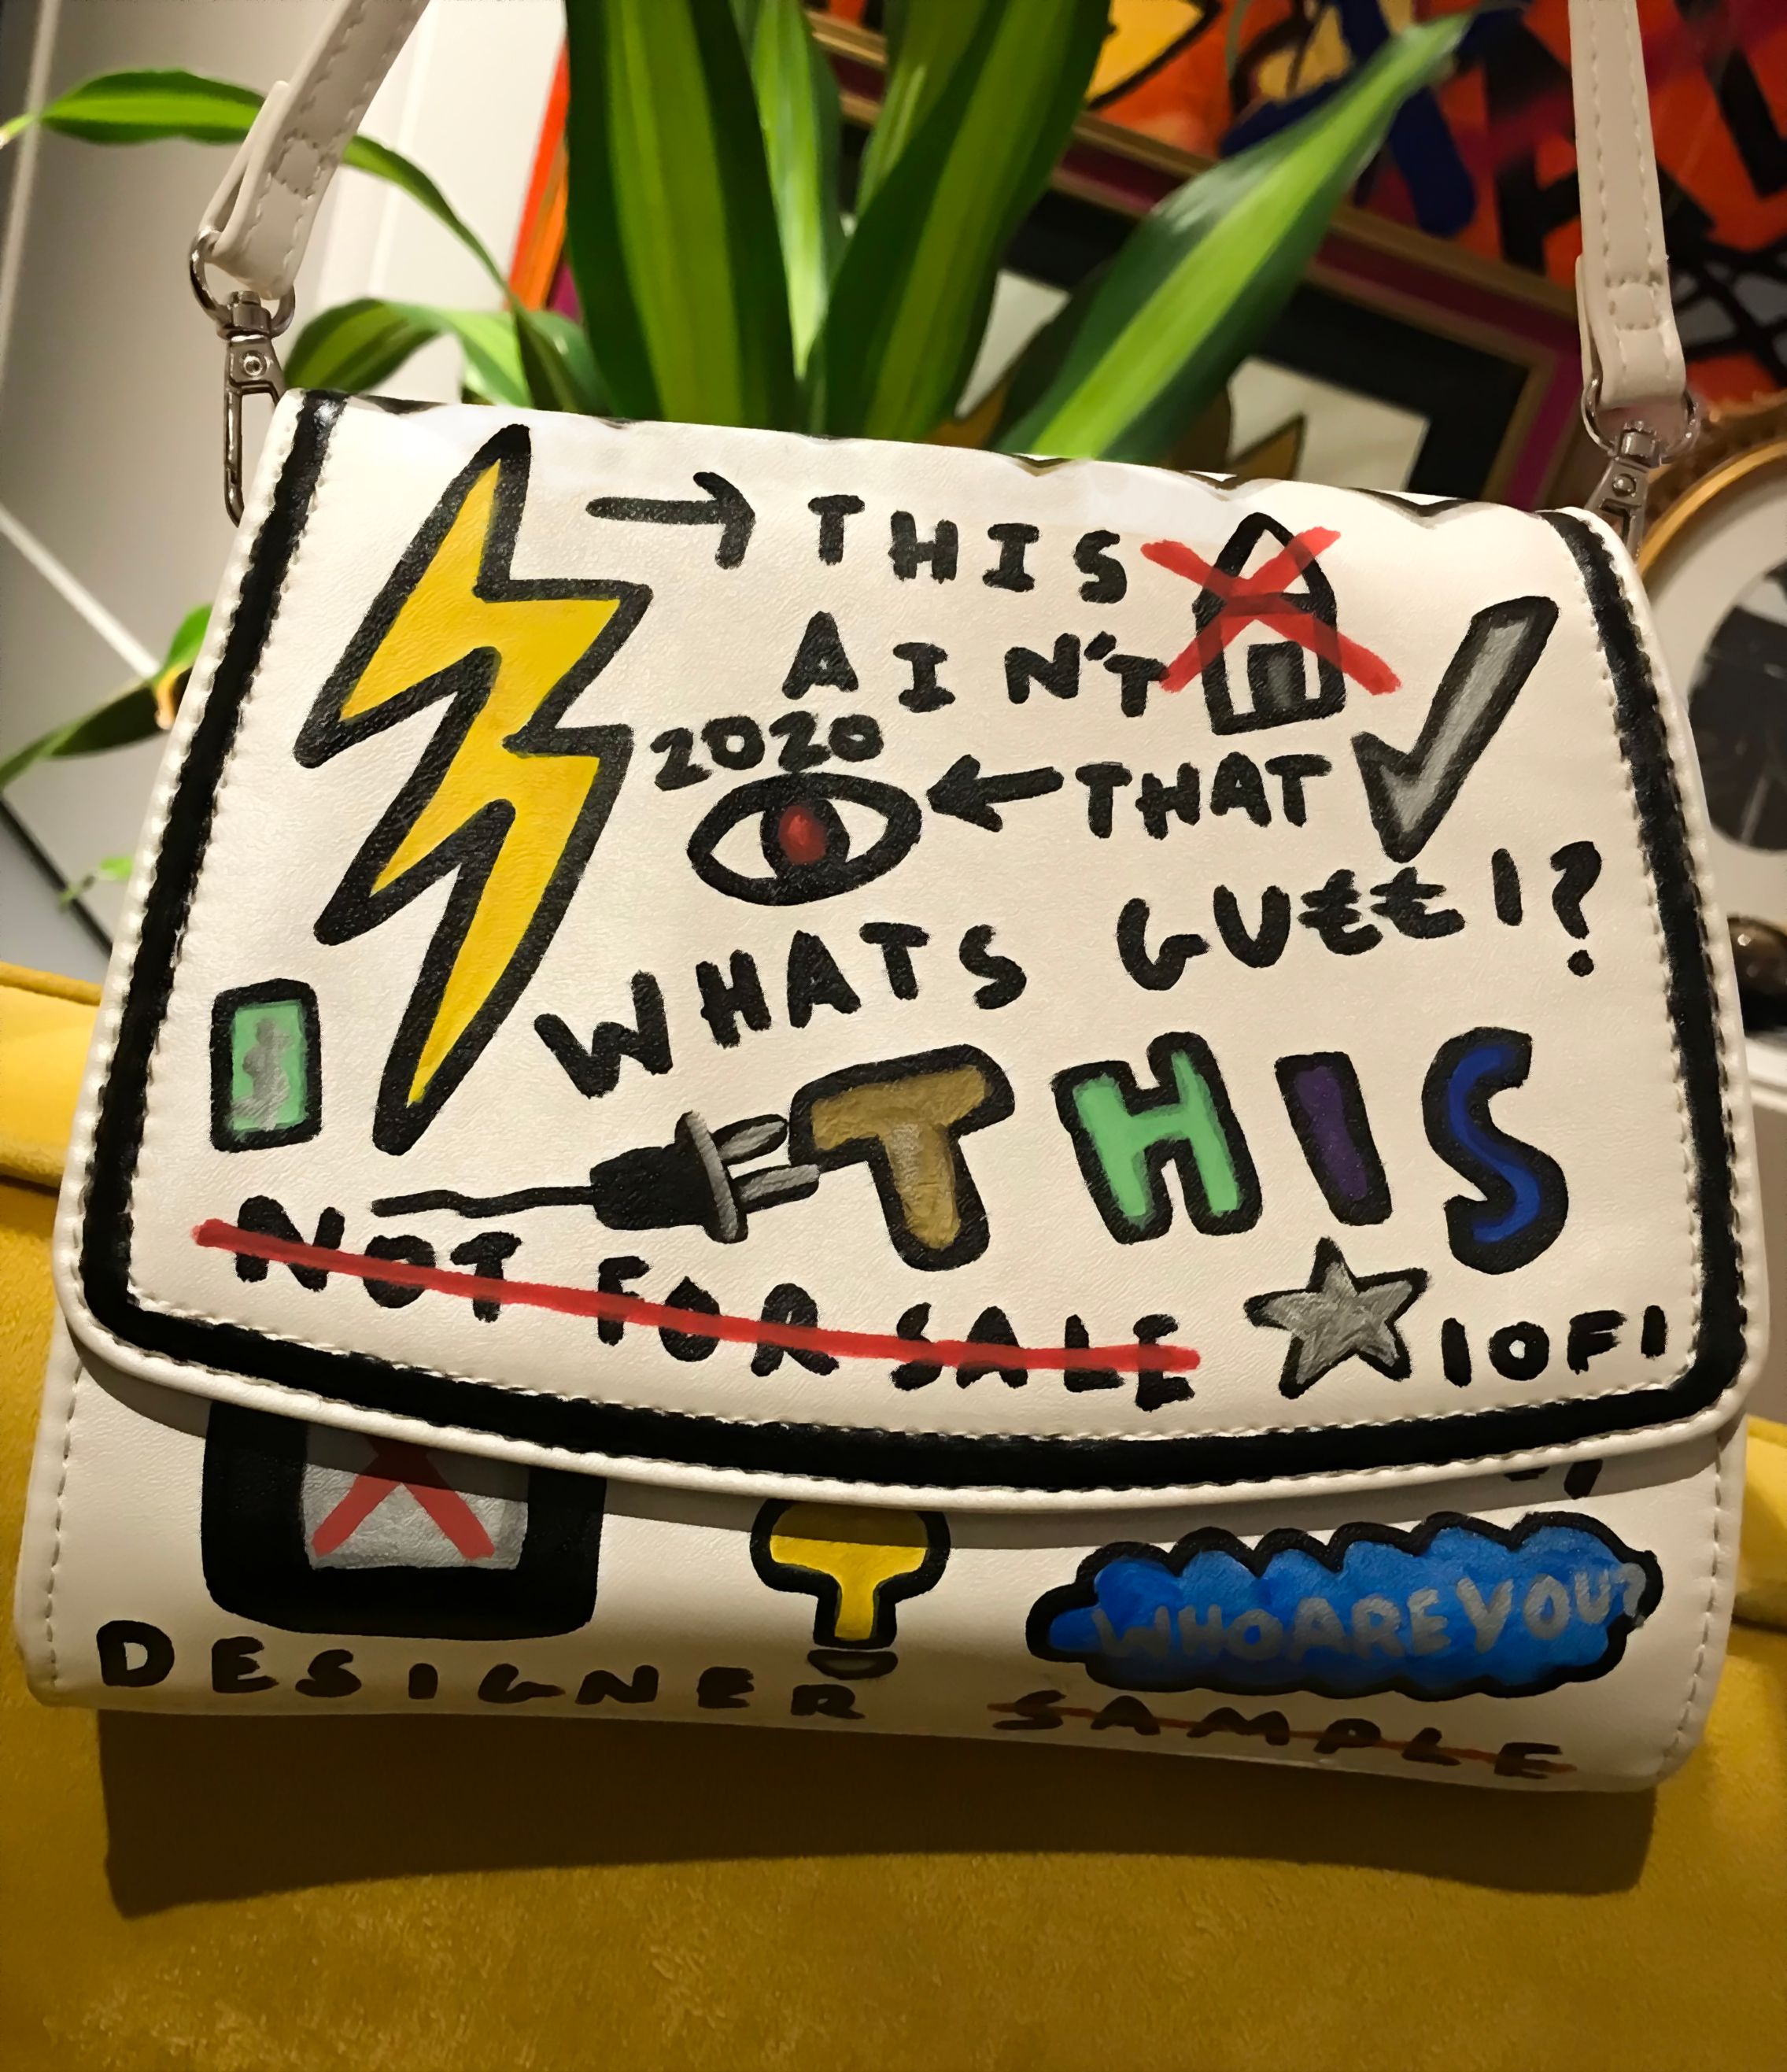 THIS
AIN'T
2020
THAT
WHATS GUŁŁI?
THIS
NOT FOR SALE
1OF1
WHO ARE YOU?
DESIGNER SAMPLE